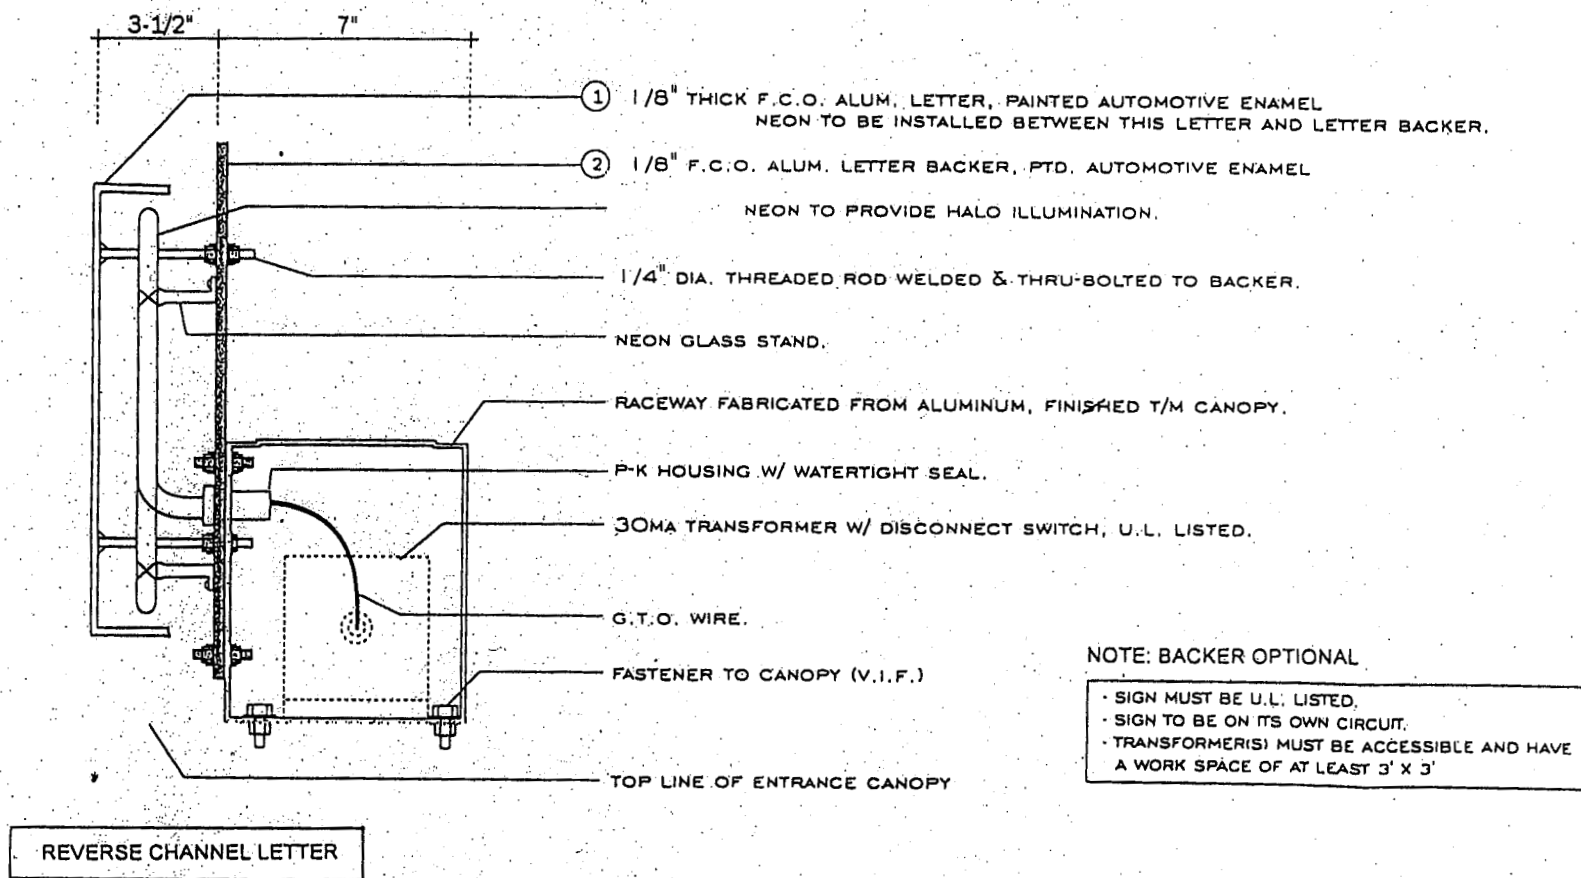 3-1/2" 7"
1 1/8" THICK F.C.O. ALUM. LETTER, PAINTED AUTOMOTIVE ENAMEL
NEON TO BE INSTALLED BETWEEN THIS LETTER AND LETTER BACKER.
2 1/8" F.C.O. ALUM. LETTER BACKER, PTD. AUTOMOTIVE ENAMEL
NEON TO PROVIDE HALO ILLUMINATION.
1/4" DIA. THREADED ROD WELDED & THRU-BOLTED TO BACKER.
NEON GLASS STAND.
RACEWAY FABRICATED FROM ALUMINUM, FINISHED T/M CANOPY.
P-K HOUSING W/ WATERTIGHT SEAL.
30MA TRANSFORMER W/ DISCONNECT SWITCH, U.L. LISTED.
G.T.O. WIRE.
FASTENER TO CANOPY (V.I.F.)
TOP LINE OF ENTRANCE CANOPY
NOTE: BACKER OPTIONAL
· SIGN MUST BE U.L. LISTED.
· SIGN TO BE ON ITS OWN CIRCUIT.
· TRANSFORMER(S) MUST BE ACCESSIBLE AND HAVE
A WORK SPACE OF AT LEAST 3' X 3'
REVERSE CHANNEL LETTER